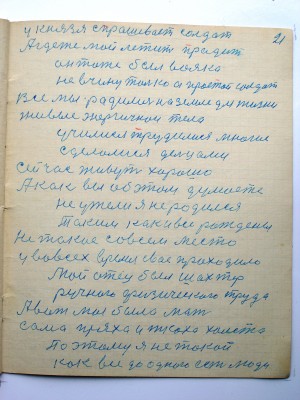 21
у князя спрашевает солдат
А где же мой летит прадит
он тоже был вояка
не в чину только а простой солдат
Все мы радилися на земле для жизни
живые энергичной тела
училися трудилися многие
сделолися делцами
сейчас живут хорошо
А как вы об этом думаете
не ужели я не родился
таким как и все рождены
Не такое совсем место
у во всех время свае проходило
Мой отец был шахтер
ручного физического труда
А вот моя была мать
сама пряха и ткаха холста
Поэтому я не такой
как все до одного есть люди